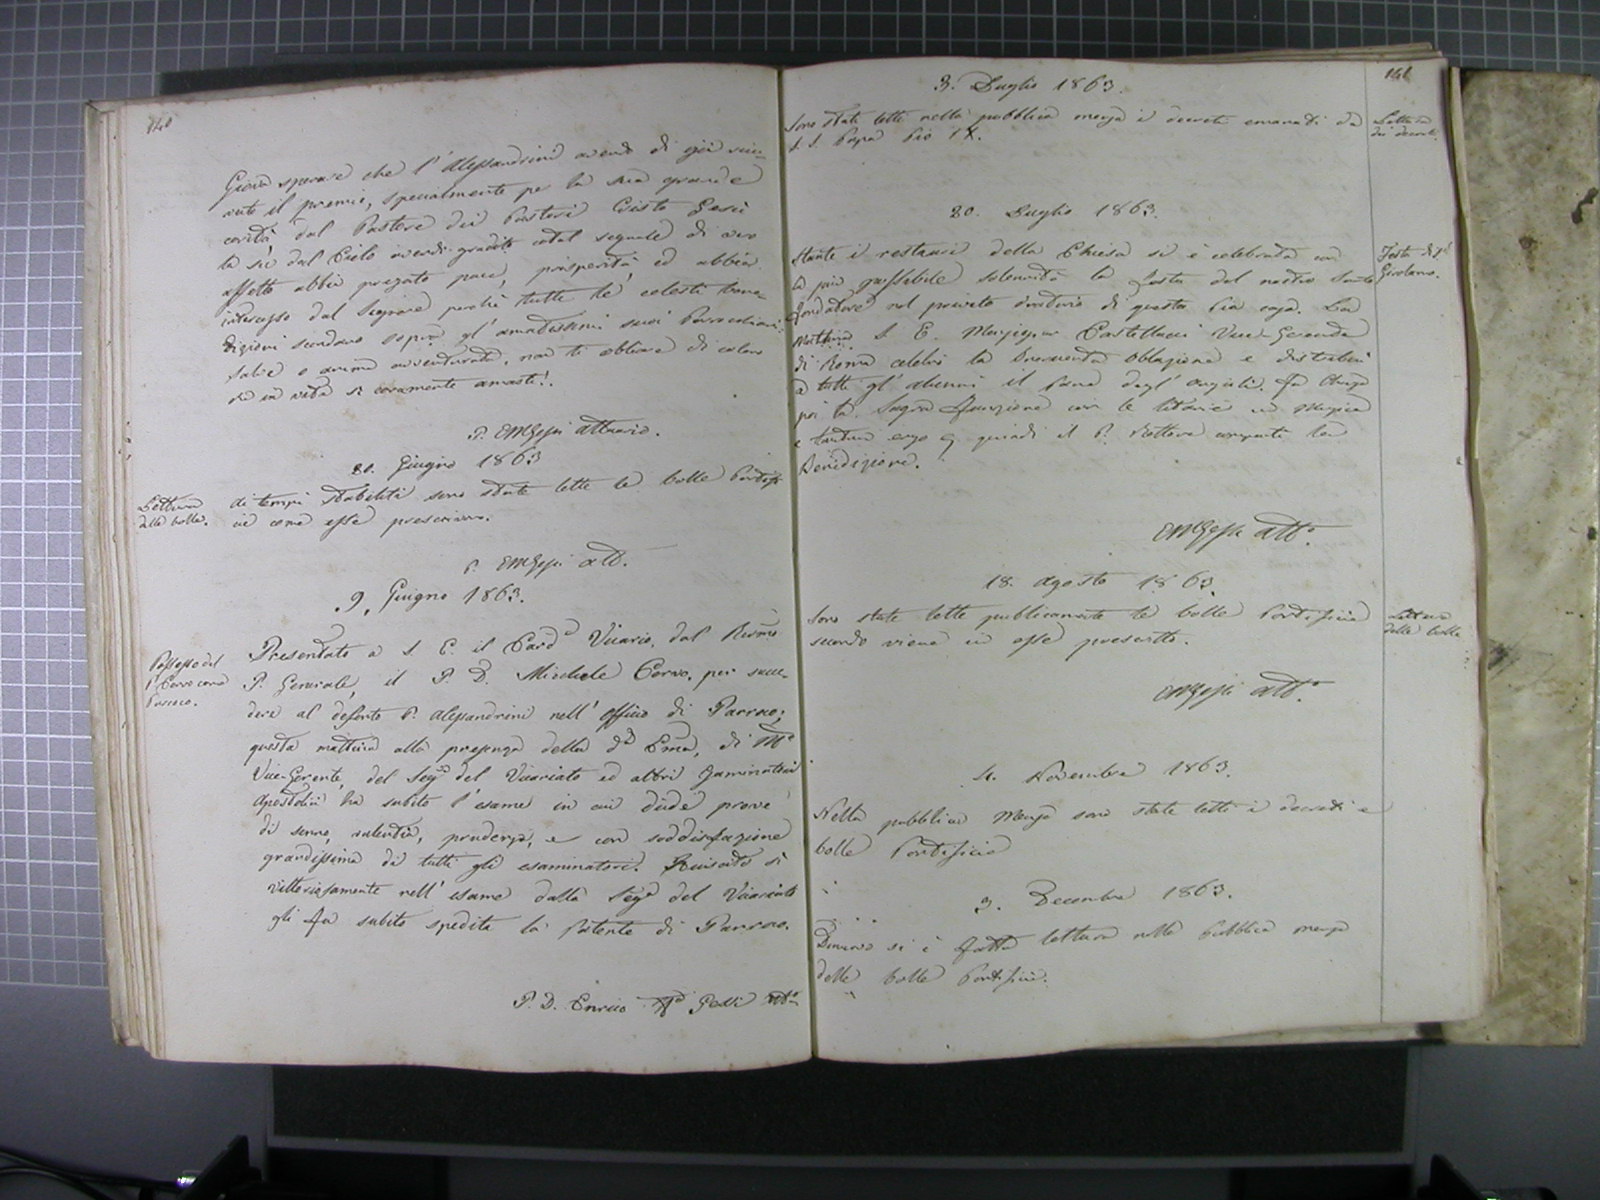 140
Giova sperare che l'Alessandrini avendo di già rice-
vuto il premio, specialmente per la sua grande
carità dal Pastore dei Pastori Cristo Gesù
la su dal Cielo avendo gradito cotal segnale di vero
affetto abbia pregato pace, prosperità, ed abbia
interceduto dal Signore perchè tutte le celesti bene-
dizioni scendano sopra gl'amatissimi suoi Parrocchiani.
Salve o anima avventurata, non ti obliare di coloro
che in vita si caramente amasti!.
P. EMGessi attuario.
30. Giugno 1863
Lettura
delle bolle.
ai tempi stabiliti sono state lette le bolle Pontifi-
cie come esse prescrivono.
P. EMGessi att.
9. Giugno 1863.
Possesso del
P. Corvo come
Parroco.
Presentato a S. E. il Card. Vicario, dal Reṽmo
P. Generale, il P. D. Michele Corvo, per succe-
dere al defonto P. Alessandrini nell'Officio di Parroco;
questa mattina alla presenza della d.ª Em̃a, di M.r
Vice-Gerente, del Seg.º del Vicariato ed altri Esaminatori
Apostolici ha subito l'esame in cui diede prove
di senno, scienza, prudenza, e con soddisfazione
grandissima di tutti gli esaminatori. Riuscito sì
vittoriosamente nell'esame dalla Seg.ª del Vicariato
gli fu subito spedita la Patente di Parroco.
P. D. Enrico M.ª Gessi att.º
141
3. Luglio 1863.
Sono state lette nella pubblica mensa i decreti emanati da
S. S. Papa Pio IX.
Lettura
dei decreti
20. Luglio 1863.
Stante i restauri della Chiesa si è celebrata con
la più possibile solennità la festa del nostro Santo
Fondatore nel privato oratorio di questa Pia casa. La
mattina S. E. Monsignor Castellacci Vice-Gerente
di Roma celebrò la Incruenta Oblazione e distribuì
a tutti gl'alunni il pane degl'Angioli. Fu chiusa
poi la Sagra funzione con le litanie in Musica
e tantum ergo e quindi il P. Rettore compartì la
Benedizione.
Festa di S.
Girolamo.
EMGessi att.º
18. Agosto 1863.
Sono state lette publicamente le bolle Pontificie
secondo viene in esse prescritto.
Lettura
delle bolle
EMGessi att.º
4. Novembre 1863.
Nella pubblica Mensa sono state letti i decreti e
bolle Pontificie
3. Decembre 1863.
si è fatta lettura nella pubblica mensa
delle bolle Pontificie.